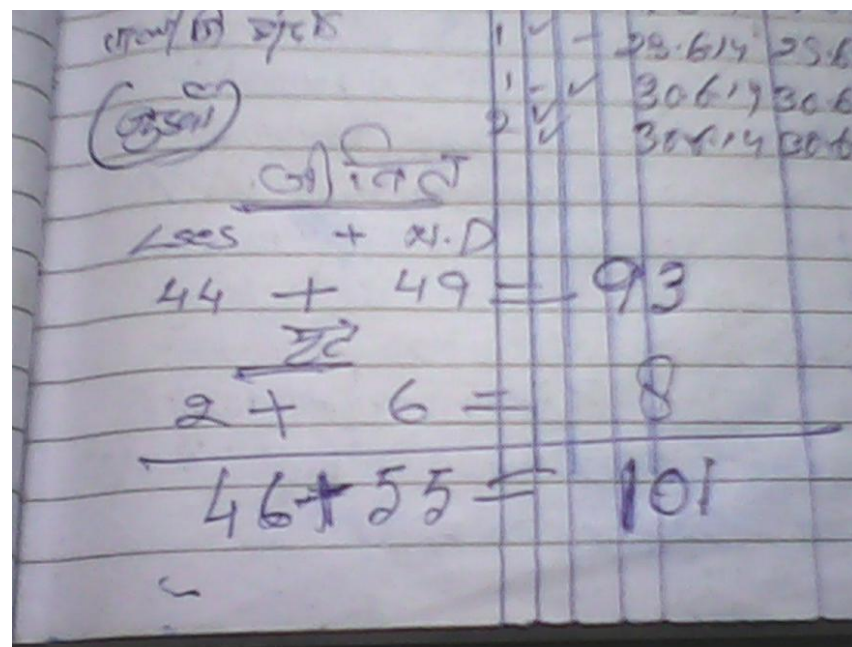 1 ✓ - 29.6.14 29.6
1 - ✓ 30.6.14 30.6
2 ✓ 30.6.14 30.6
जुड़वाँ
जीवित
Lscs + सा.D
44 + 49 = 93
मृत
2 + 6 = 8
46 + 55 = 101